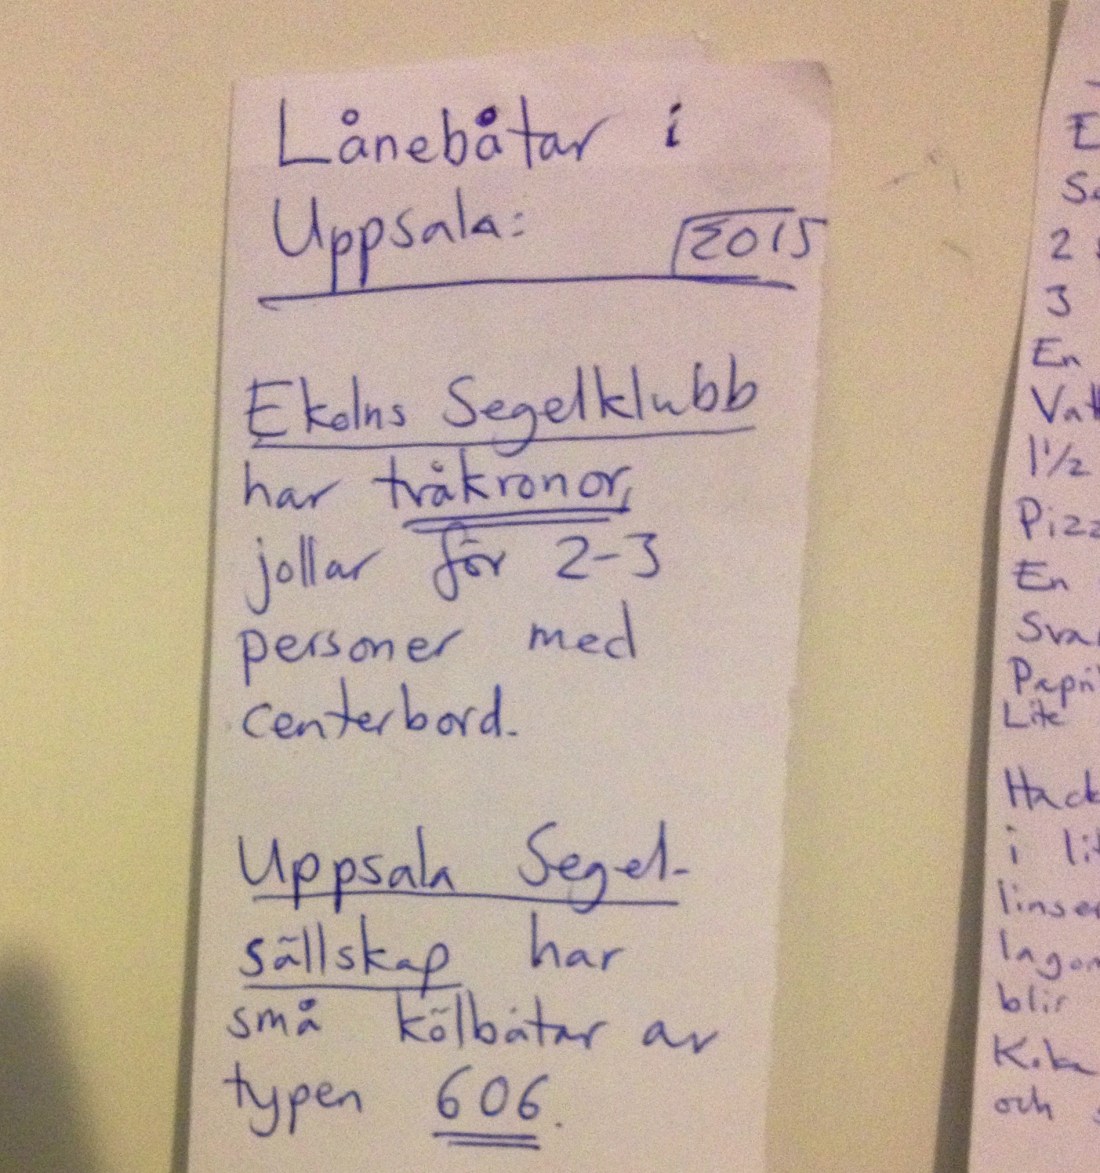 Lånebåtar i
Uppsala: 2015
Ekolns Segelklubb
har tråkronor,
jollar för 2-3
personer med
centerbord.
Uppsala Segel-
sällskap har
små kölbåtar av
typen 606.
E
2
3
En
1½
En
Lite
i
blir
och